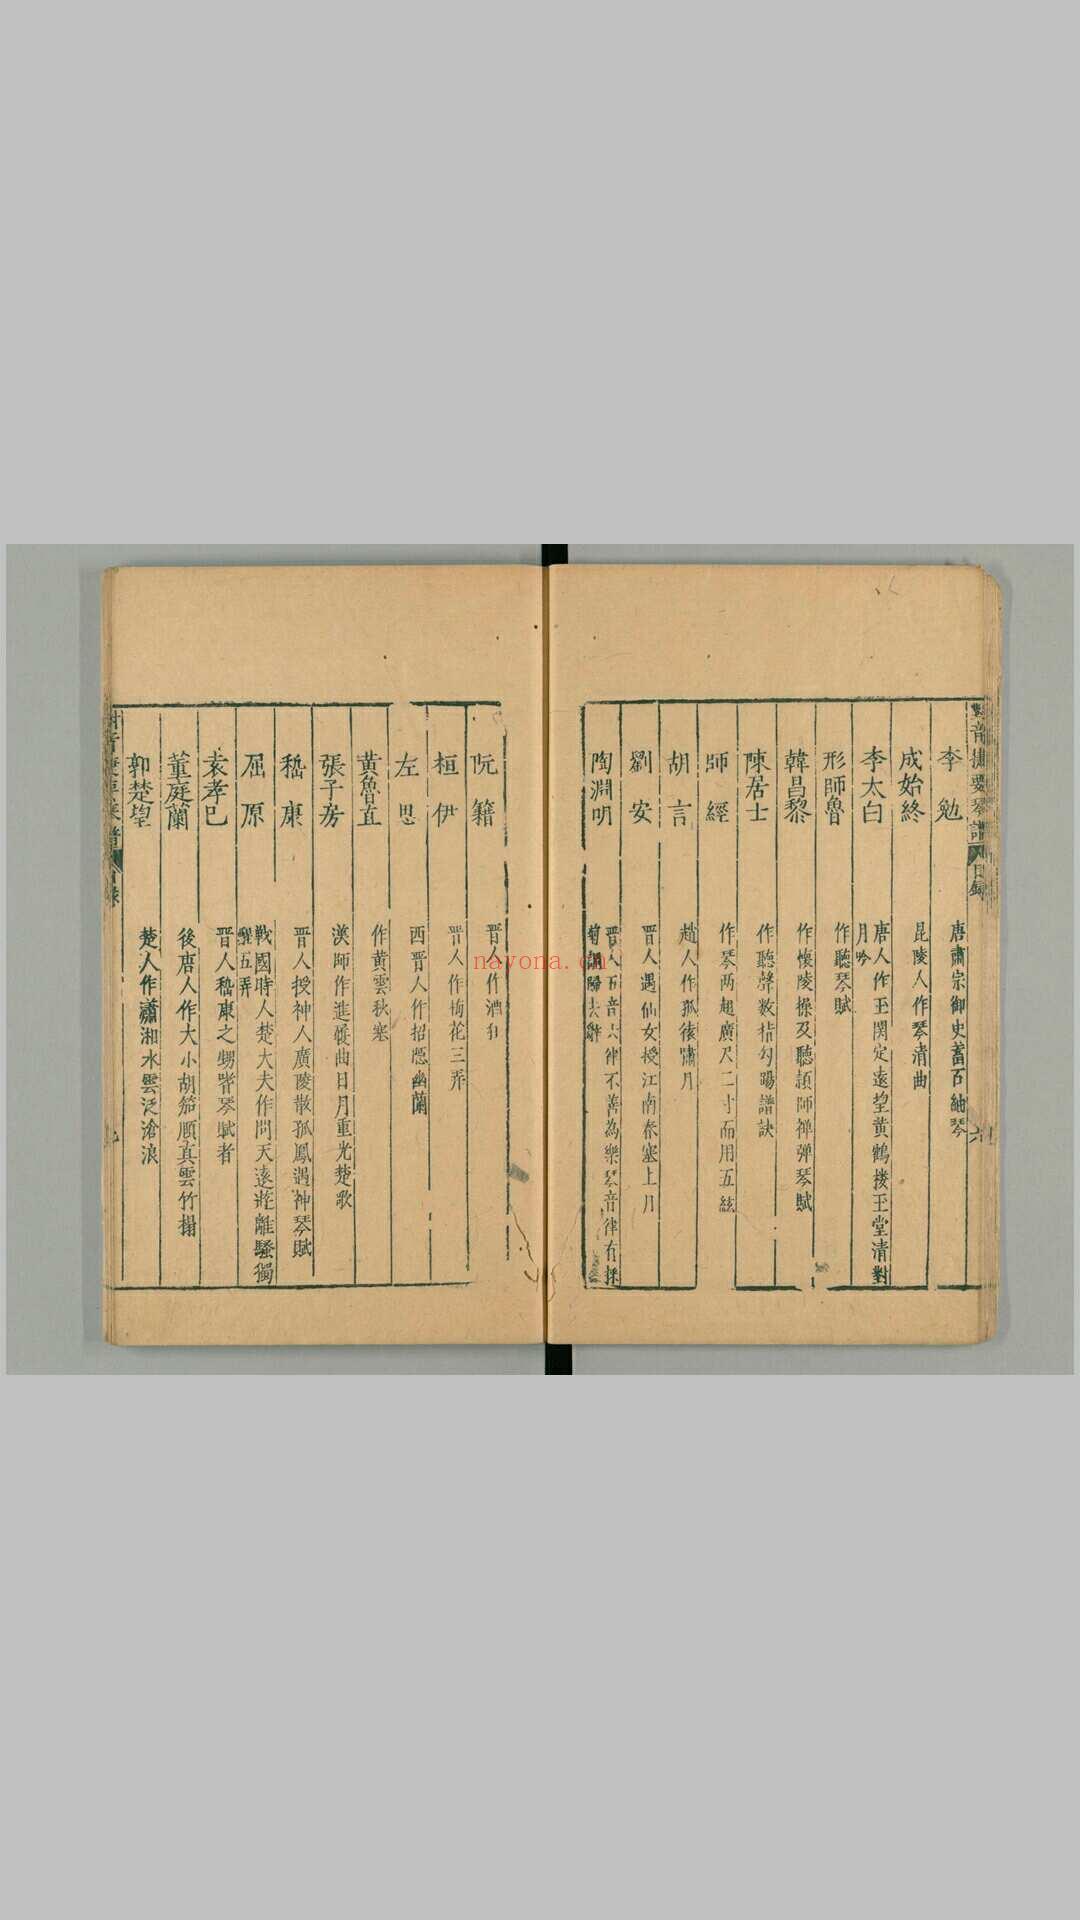 李勉
唐肅宗御史蓄百紬琴
成始終
昆陵人作琴清曲
李太白
唐人作王関定遠望黄鶴楼王堂清對
月吟
形師魯
作聽琴賦
韓昌黎
作懐陵操及聽頴師禅弹琴賦
陳居士
作聽聲数指勾踢譜訣
師經
作琴两超廣尺二寸而用五絃
胡言
趙人作孤猿嘯月
劉安
晋人遇仙女授江南春塞上月
陶淵明
晋人五音六律不善為樂琴音律有採
菊調歸去辭
阮籍
晋人作酒狂
桓伊
晋人作梅花三弄
左思
西晋人作招隠幽蘭
黄魯直
作黄雲秋塞
張子房
漢師作進履曲日月重光楚歌
嵇康
晋人授神人廣陵散孤鳳遇神琴賦
屈原
戰國時人楚大夫作問天遠遊離騷獨
醒五弄
袁孝已
晋人嵇康之甥背琴賦者
董庭蘭
後唐人作大小胡笳願真雲竹榻
郭楚望
楚人作瀟湘水雲泛滄浪
nayona.cn